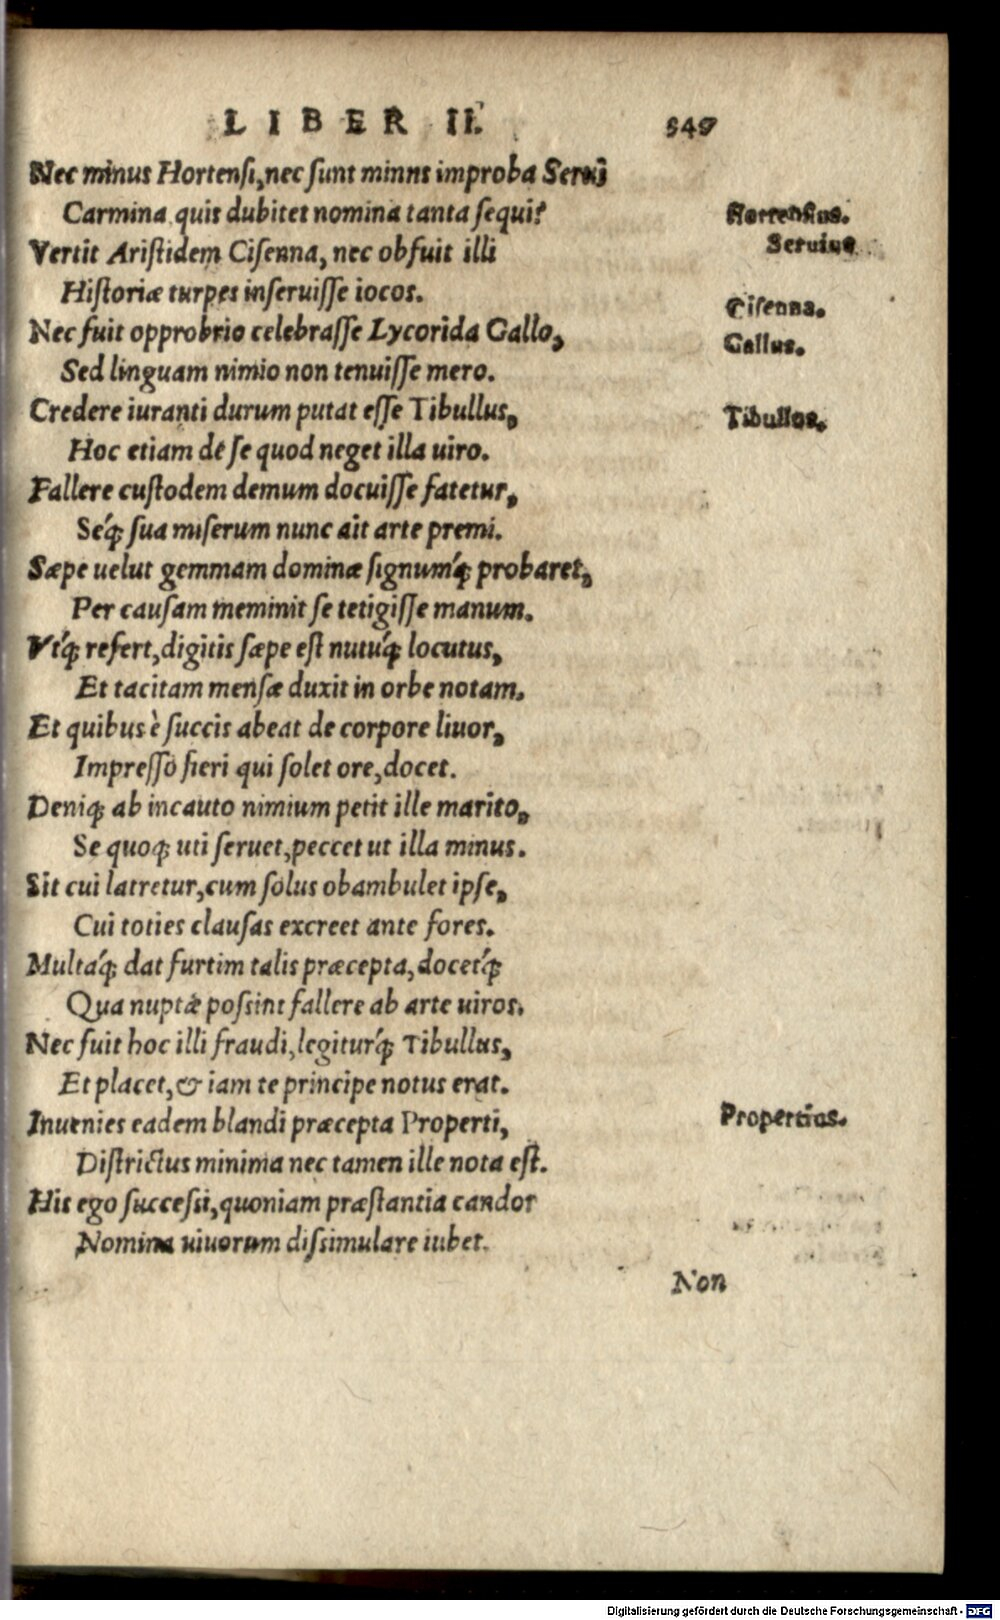 LIBER II. 549
Nec minus Hortensi, nec sunt minns improba Serui
Carmina quis dubitet nomina tanta sequi?
Hortensius.
Seruius
Vertit Aristidem Cisenna, nec obfuit illi
Historiæ turpes inseruisse iocos.
Cisenna.
Nec fuit opprobrio celebrasse Lycorida Gallo,
Gallus.
Sed linguam nimio non tenuisse mero.
Credere iuranti durum putat esse Tibullus,
Tibullus.
Hoc etiam de se quod neget illa uiro.
Fallere custodem demum docuisse fatetur,
Seq́; sua miserum nunc ait arte premi.
Sæpe uelut gemmam dominæ signumq́; probaret,
Per causam meminit se tetigisse manum.
Vtq́; refert, digitis sæpe est nutuq́; locutus,
Et tacitam mensæ duxit in orbe notam.
Et quibus è succis abeat de corpore liuor,
Impresso fieri qui solet ore, docet.
Deniq; ab incauto nimium petit ille marito,
Se quoq; uti seruet, peccet ut illa minus.
Sit cui latretur, cum solus obambulet ipse,
Cui toties clausas excreet ante fores.
Multaq́; dat furtim talis præcepta, docetq́;
Qua nuptæ possint fallere ab arte uiros.
Nec fuit hoc illi fraudi, legiturq́; Tibullus,
Et placet, & iam te principe notus erat.
Inuenies eadem blandi præcepta Properti,
Propertius.
Districtus minima nec tamen ille nota est.
His ego successi, quoniam præstantia candor
Nomina uiuorum dissimulare iubet.
Non
Digitalisierung gefördert durch die Deutsche Forschungsgemeinschaft - DFG